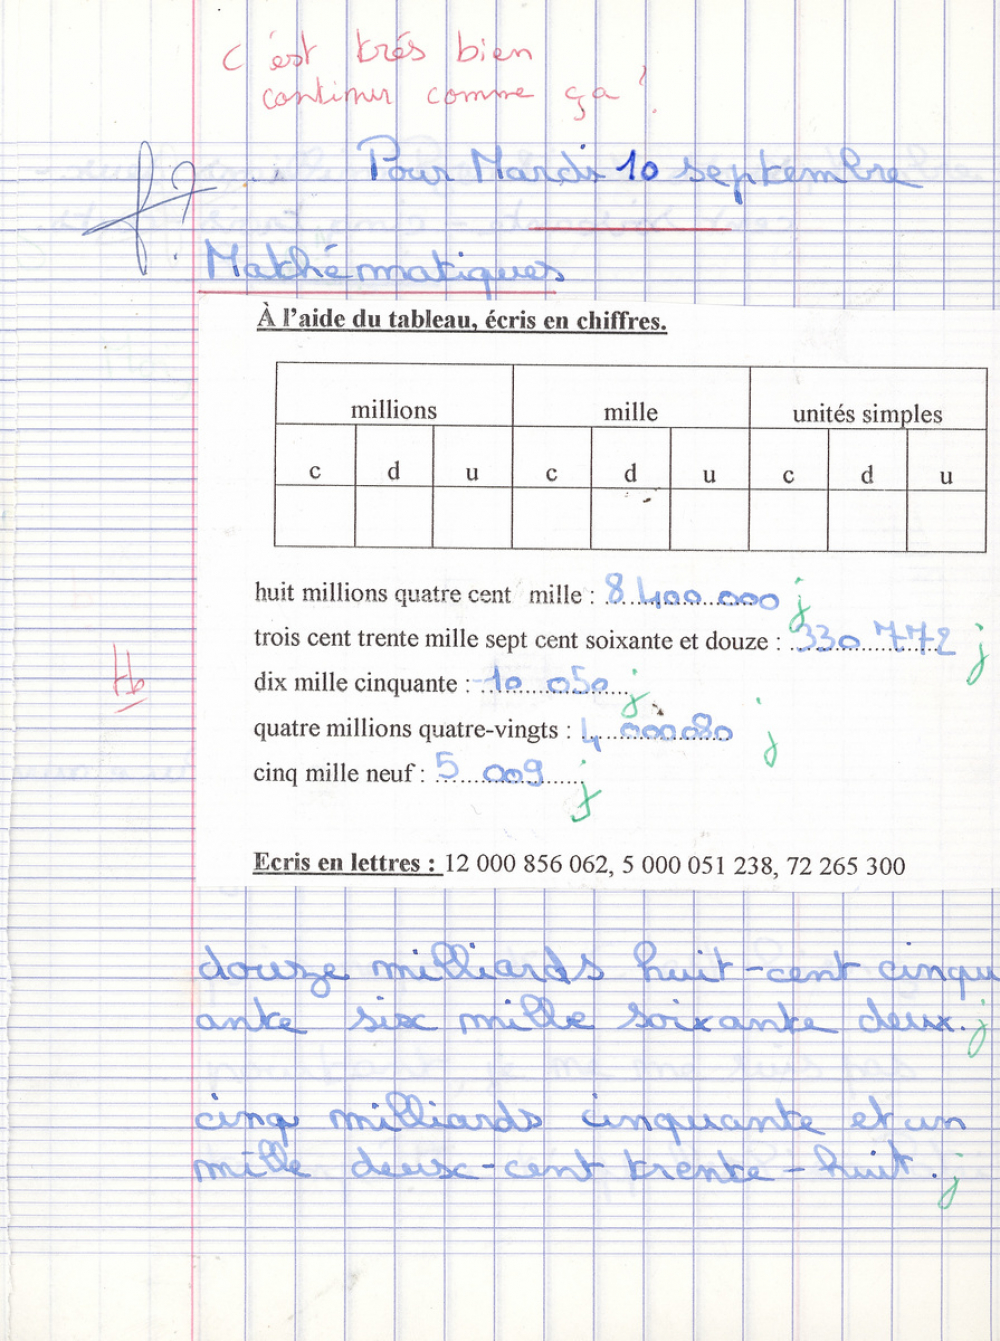 c'est trés bien
continur comme ça !
Pour Mardi 10 septembre
Mathématiques
À l'aide du tableau, écris en chiffres.
millions mille unités simples
c d u c d u c d u
huit millions quatre cent mille : 8 400 000 j
trois cent trente mille sept cent soixante et douze : 330 772 j
dix mille cinquante : 10 050 j
Tb
quatre millions quatre-vingts : 4 000080 j
cinq mille neuf : 5 009 j
Ecris en lettres : 12 000 856 062, 5 000 051 238, 72 265 300
douze milliards huit-cent cinqu
ante six mille soixante deux. j
cinq milliards cinquante et un
mille deux-cent trente-huit. j